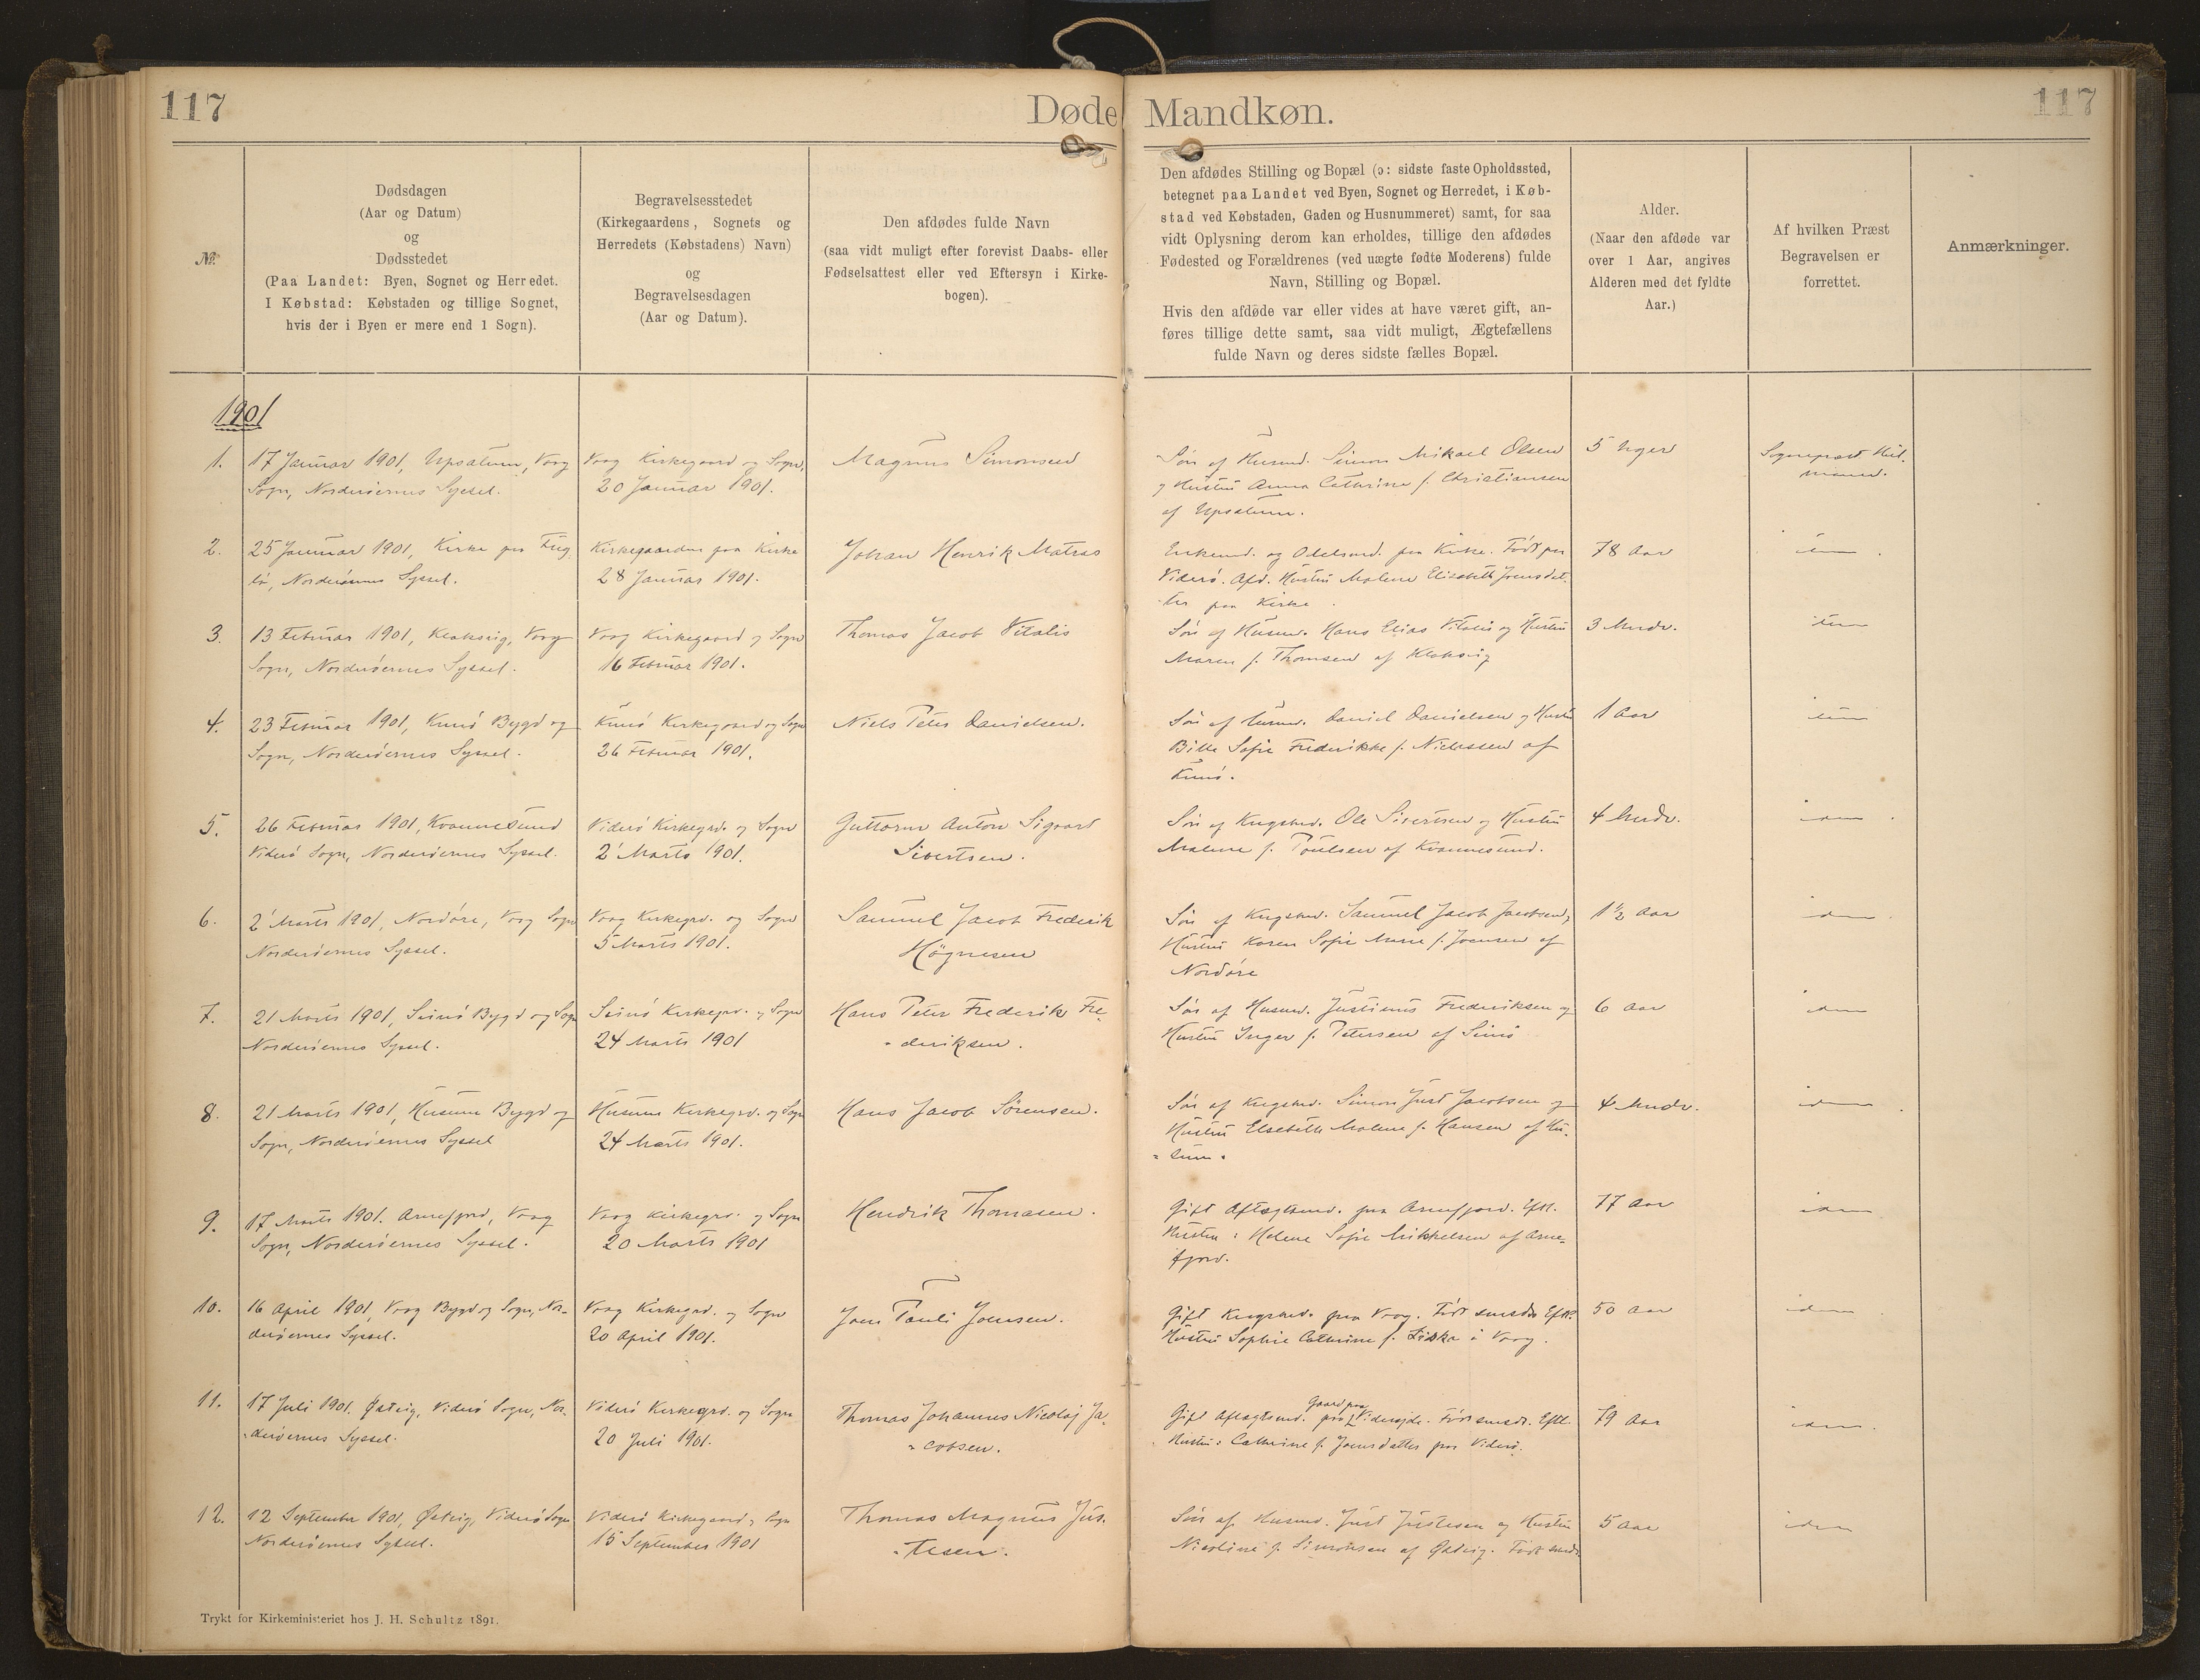 117
Døde Mandkøn.
117
№
Dødsdagen
(Aar og Datum)
og
Dødsstedet
(Paa Landet: Byen, Sognet og Herredet.
I Købstad: Købstaden og tillige Sognet,
hvis der i Byen er mere end 1 Sogn).
Begravelsesstedet
(Kirkegaardens, Sognets og
Herredets (Købstadens) Navn)
og
Begravelsesdagen
(Aar og Datum).
Den afdødes fulde Navn
(saa vidt muligt efter forevist Daabs- eller
Fødselsattest eller ved Eftersyn i Kirke-
bogen).
Den afdødes Stilling og Bopæl (ɔ: sidste faste Opholdssted,
betegnet paa Landet ved Byen, Sognet og Herredet, i Køb-
stad ved Købstaden, Gaden og Husnummeret) samt, for saa
vidt Oplysning derom kan erholdes, tillige den afdødes
Fødested og Forældrenes (ved uægte fødte Moderens) fulde
Navn, Stilling og Bopæl.
Hvis den afdøde var eller vides at have været gift, an-
føres tillige dette samt, saa vidt muligt, Ægtefællens
fulde Navn og deres sidste fælles Bopæl.
Alder.
(Naar den afdøde var
over 1 Aar, angives
Alderen med det fyldte
Aar.)
Af hvilken Præst
Begravelsen er
forrettet.
Anmærkninger.
1901
1.
17 Januar 1901, Upsalum, Vaag
Sogn, Norderøernes Syssel.
Vaag Kirkegaard og Sogn,
20 Januar 1901.
Magnus Simonsen
Søn af Husmd. Simon Mikael Olsen
og Hustru Anna Cathrine f. Christiansen
af Upsalum.
5 Uger
Sognepræst
2.
25 Januar 1901, Kirke paa Fug-
lø, Norderøernes Syssel.
Kirkegaarden paa Kirke
28 Januar 1901.
Johan Henrik Matras
Enkemd. og Odelsmd. paa Kirke. Født paa
Viderø. Afd. Hustru Malene Elisabeth Joensdat-
ter paa Kirke.
78 Aar
idem.
3.
13 Februar 1901, Klaksvig, Vaag
Sogn, Norderøernes Syssel.
Vaag Kirkegaard og Sogn
16 Februar 1901.
Thomas Jacob Vitalis
Søn af Husm. Hans Elias Vitalis og Hustru
Maren f. Thomsen af Klaksvig
3 Mndr.
idem
4.
23 Februar 1901, Kunø Bygd og
Sogn, Norderøernes Syssel.
Kunø Kirkegaard og Sogn
26 Februar 1901.
Niels Peter Danielsen.
Søn af Husmd. Daniel Danielsen og Hustru
Bille Sofie Frederikke f. Nielsen af
Kunø.
1 Aar
idem
5.
26 Februar 1901, Kvannesund
Viderø Sogn, Norderøernes Syssel.
Viderø Kirkegrd. og Sogn
2 Marts 1901.
Guttorm Anton Sigvard
Sivertsen.
Søn af Kngsbmd. Ole Sivertsen og Hustru
Malene f. Poulsen af Kvannesund.
4 Mndr.
idem.
6.
2 Marts 1901, Nordøre, Vaag Sogn
Norderøernes Syssel.
Vaag Kirkegrd. og Sogn
5 Marts 1901.
Samuel Jacob Frederik
Högnesen
Søn af Kngsbmd. Samuel Jacob Jacobsen og
Hustru Karen Sofie Marie f. Joensen af
Nordøre
1½ Aar
idem.
7.
21 Marts 1901, Svinø Bygd og Sogn
Norderøernes Syssel.
Svinø Kirkegrd. og Sogn
24 Marts 1901
Hans Peter Frederik Fre-
-deriksen.
Søn af Husmd. Justinus Frederiksen og
Hustru Inger f. Petersen af Svinø
6 Aar
idem
8.
21 Marts 1901, Husum Bygd og
Sogn, Norderøernes Syssel
Husum Kirkegrd. og Sogn
24 Marts 1901.
Hans Jacob Sörensen.
Søn af Kngsbmd. Simon Just Jacobsen og
Hustru Elsebeth Malene f. Hansen af Hu-
-sum.
4 Mndr.
idem.
9.
17 Marts 1901. Arnefjord, Vaag
Sogn, Norderøernes Syssel.
Vaag Kirkegrd. og Sogn
20 Marts 1901
Hendrik Thomasen.
Gift Aftægtsmd. paa Arnefjord. Eftl.
Hustru: Helene Sofie Mikkelsen af Arne-
fjord.
77 Aar
idem
10.
16 April 1901, Vaag Bygd og Sogn, Nor-
derøernes Syssel.
Vaag Kirkegrd. og Sogn
20 April 1901.
Joen Pauli Joensen.
Gift Kngsbmd. paa Vaag. Født smsds. Eftl.
Hustru Sophie Cathrine f. Liska i Vaag.
50 Aar
idem.
11.
17 Juli 1901. Østvig, Viderø Sogn, Nor-
-derøernes Syssel.
Viderø Kirkegrd. og Sogn
20 Juli 1901.
Thomas Johannes Nicolaj Ja-
-cobsen.
Gaard paa
Gift Aftægtsmd. paa Viderejde. Født smsds. Eftl.
Hustru: Cathrine f. Joensdatter paa Viderø.
79 Aar
idem.
12.
12 September 1901, Østvig, Viderø Sogn
Norderøernes Syssel.
Viderø Kirkegaard og Sogn
15 September 1901
Thomas Magnus Jus-
-tesen.
Søn af Husmd. Just Justesen og Hustru
Nicoline f. Simonsen af Østvig. Født smsds.
5 Aar
idem
Trykt for Kirkeministeriet hos J. H. Schultz 1891.